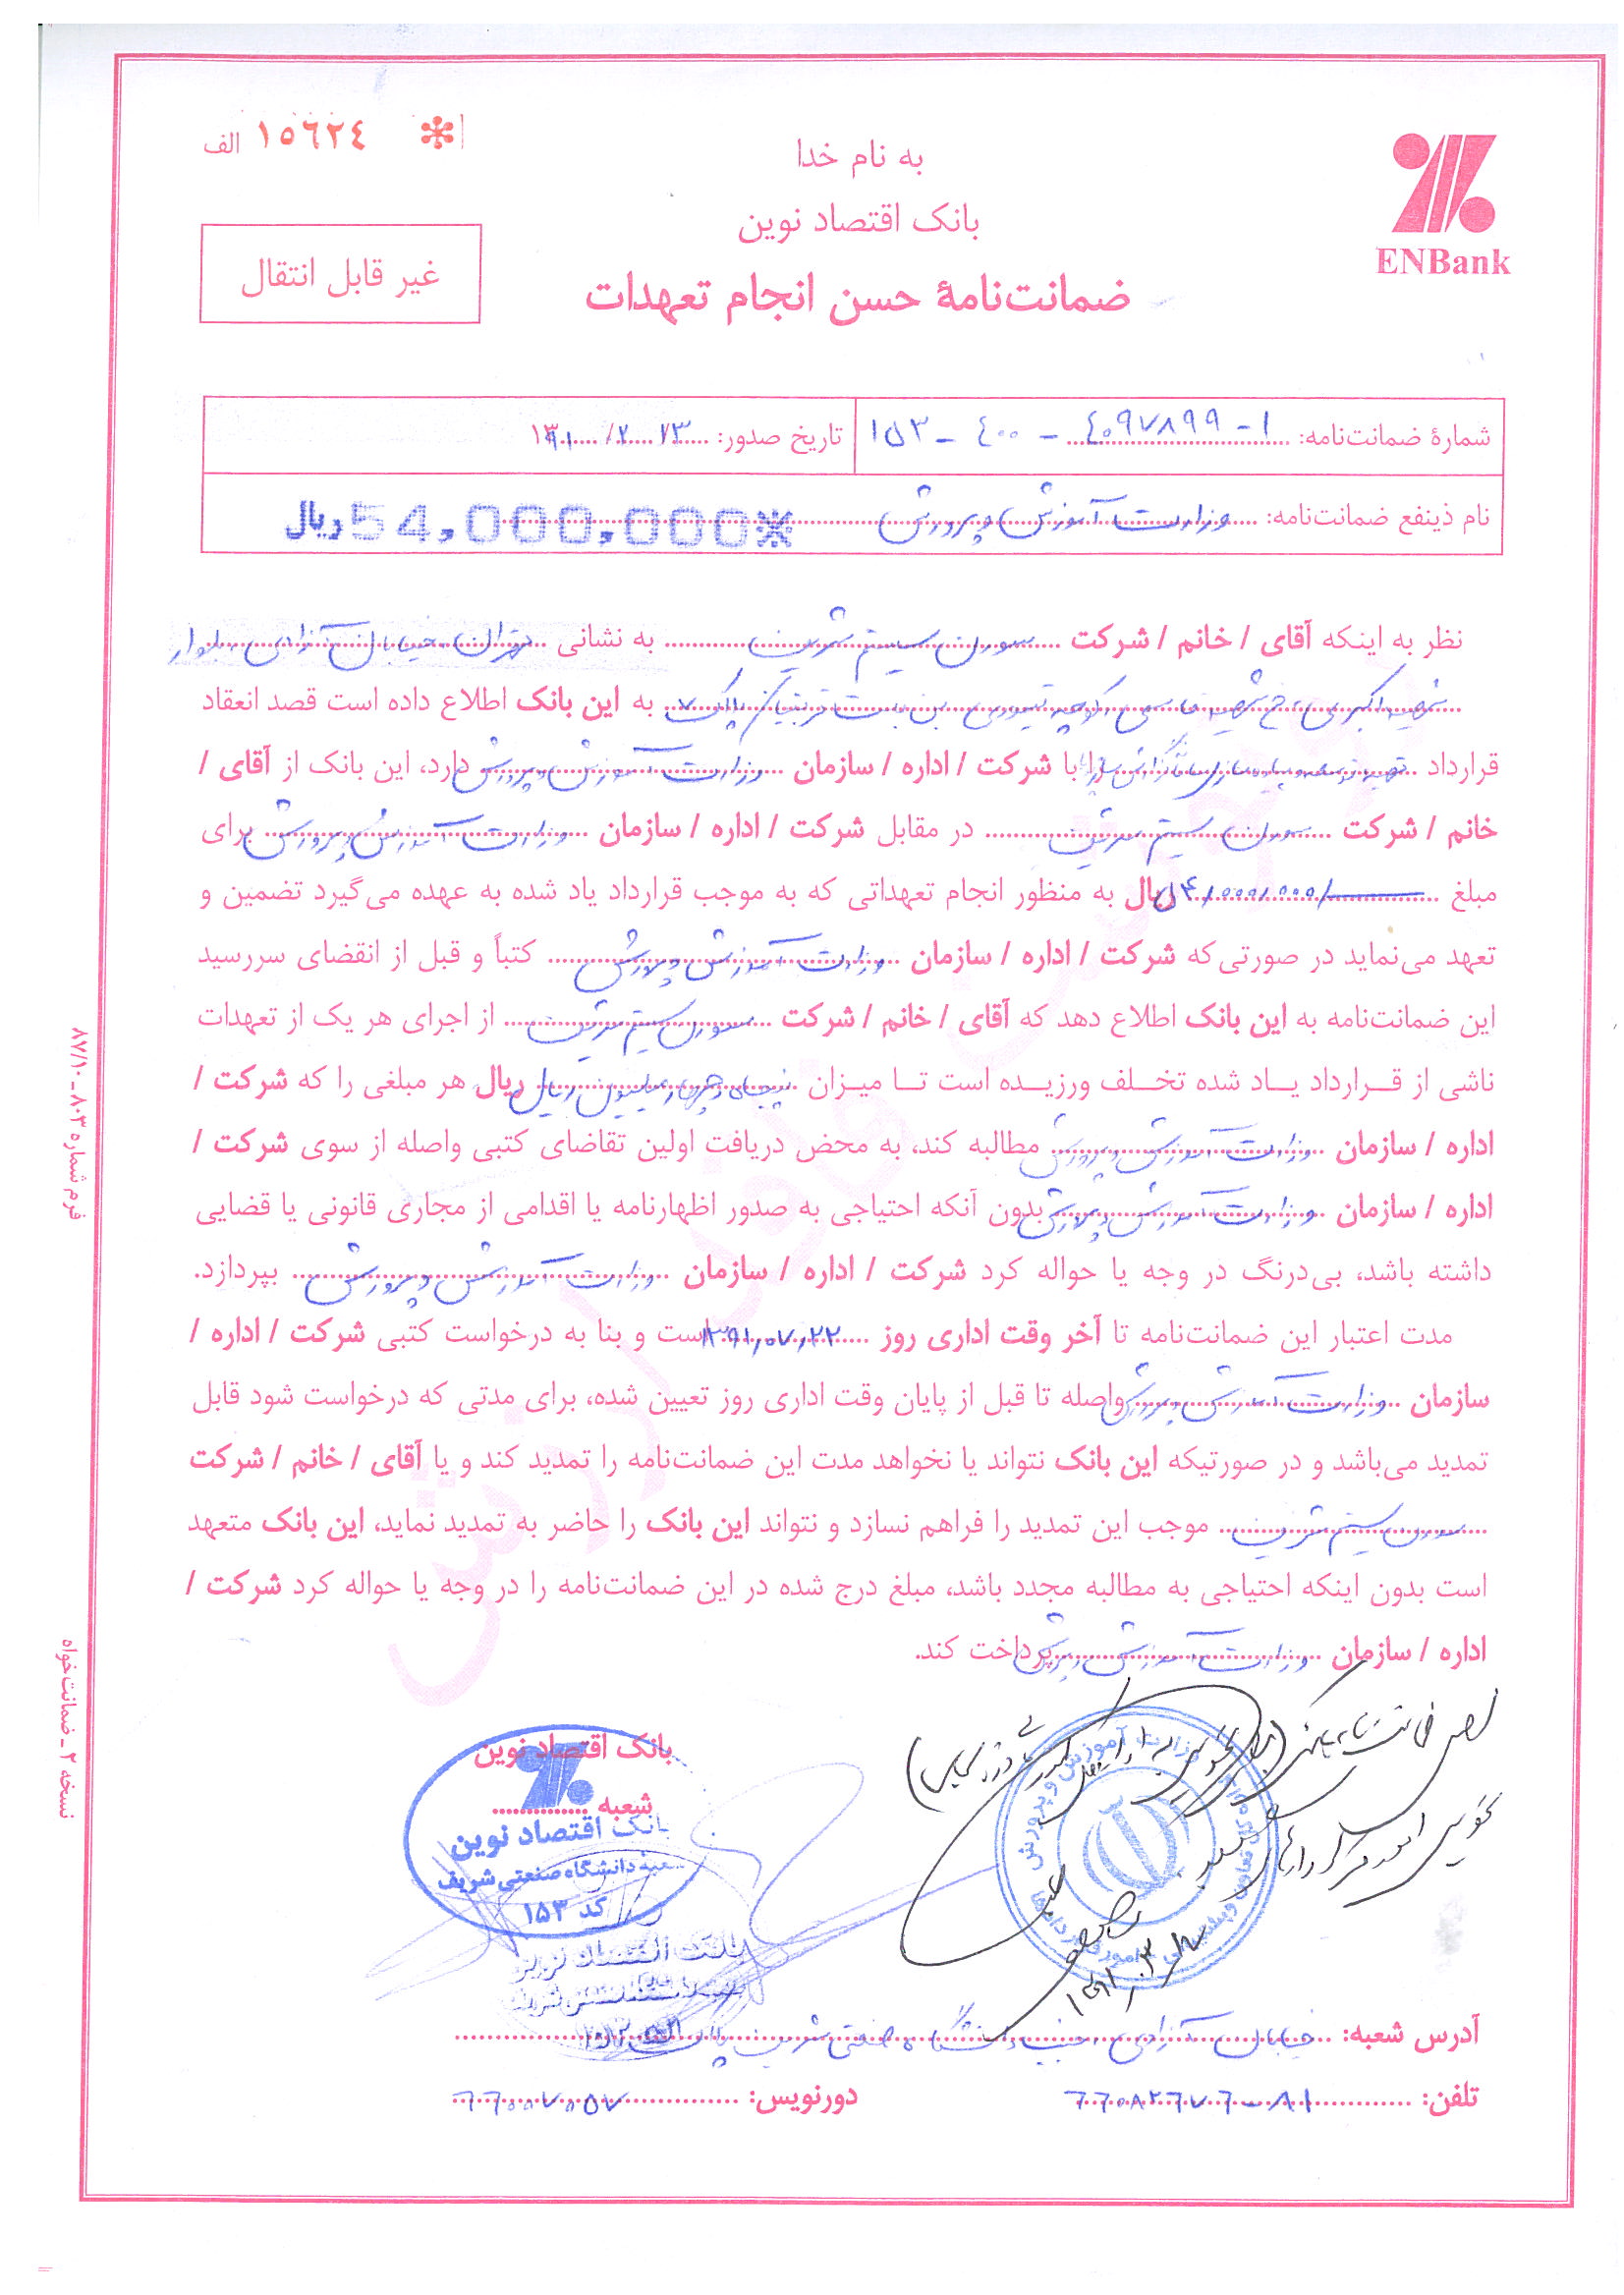 ۱۵۶۲۴ الف
به نام خدا
بانک اقتصاد نوین
ENBank
ضمانت‌نامهٔ حسن انجام تعهدات
غیر قابل انتقال
شمارهٔ ضمانت‌نامه: ۱۵۳ - ۴۰۰ - ۴۰۹۷۸۹۹ - ۱
تاریخ صدور:
نام ذینفع ضمانت‌نامه: وزارت آموزش و پرورش *54,000,000 ریال
نظر به اینکه آقای / خانم / شرکت سیستم شریف به نشانی تهران، خیابان آزادی، بلوار
شهید اکبری، خ شهید قاسمی، کوچه تیموری، بن بست پلاک ۷ به این بانک اطلاع داده است قصد انعقاد
قرارداد تهیه توسعه و پیاده سازی با شرکت / اداره / سازمان وزارت آموزش و پرورش دارد، این بانک از آقای /
خانم / شرکت سیستم شریف در مقابل شرکت / اداره / سازمان وزارت آموزش و پرورش برای
مبلغ ریال به منظور انجام تعهداتی که به موجب قرارداد یاد شده به عهده می‌گیرد تضمین و
تعهد می‌نماید در صورتی‌که شرکت / اداره / سازمان وزارت آموزش و پرورش کتباً و قبل از انقضای سررسید
این ضمانت‌نامه به این بانک اطلاع دهد که آقای / خانم / شرکت سیستم شریف از اجرای هر یک از تعهدات
ناشی از قرارداد یاد شده تخلف ورزیده است تا میزان پنجاه و چهار میلیون ریال ریال هر مبلغی را که شرکت /
اداره / سازمان وزارت آموزش و پرورش مطالبه کند، به محض دریافت اولین تقاضای کتبی واصله از سوی شرکت /
اداره / سازمان وزارت آموزش و پرورش بدون آنکه احتیاجی به صدور اظهارنامه یا اقدامی از مجاری قانونی یا قضایی
داشته باشد، بی‌درنگ در وجه یا حواله کرد شرکت / اداره / سازمان وزارت آموزش و پرورش بپردازد.
مدت اعتبار این ضمانت‌نامه تا آخر وقت اداری روز ۱۳۹۱٫۰۷٫۲۲ است و بنا به درخواست کتبی شرکت / اداره /
سازمان وزارت آموزش و پرورش واصله تا قبل از پایان وقت اداری روز تعیین شده، برای مدتی که درخواست شود قابل
تمدید می‌باشد و در صورتیکه این بانک نتواند یا نخواهد مدت این ضمانت‌نامه را تمدید کند و یا آقای / خانم / شرکت
سیستم شریف موجب این تمدید را فراهم نسازد و نتواند این بانک را حاضر به تمدید نماید، این بانک متعهد
است بدون اینکه احتیاجی به مطالبه مجدد باشد، مبلغ درج شده در این ضمانت‌نامه را در وجه یا حواله کرد شرکت /
اداره / سازمان وزارت آموزش و پرورش پرداخت کند.
بانک اقتصاد نوین
شعبه
بانک اقتصاد نوین
شعبه دانشگاه صنعتی شریف
کد ۱۵۳
وزارت آموزش و پرورش
بانک اقتصاد نوین
شعبه دانشگاه صنعتی شریف
آدرس شعبه: خیابان آزادی، جنب دانشگاه صنعتی شریف
تلفن: ۶۶۰۸۲۶۷۶-۸۱
دورنویس: ۶۶۰۰۷۰۵۷
فرم شماره ۸۰۳ ـ ۸۷/۱۰
نسخه ۲ ـ ضمانت خواه